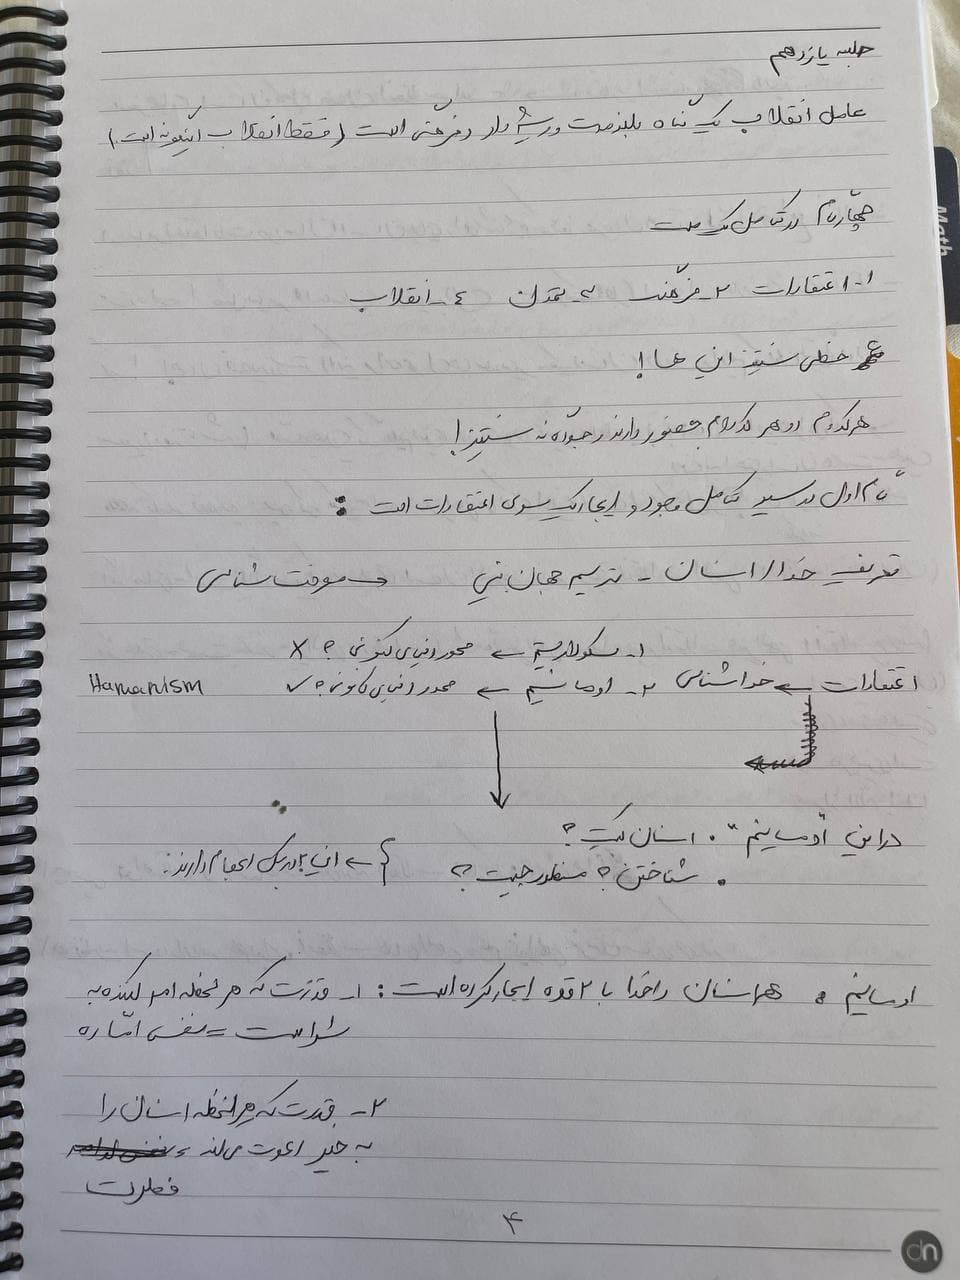 جلسه یازدهم
عامل انقلاب یک نگاه بلندمدت و ریشه دار و فرهنگی است (فقط انقلاب اینگونه است.)
چهار گام در تکامل یک ملت
۱- اعتقادات ۲- فرهنگ ۳- تمدن ٤- انقلاب
خطی سنتیز این ها!
هرکدام در هر کدام حضور دارند و جداگانه سنتیز!
گام اول در سیر تکامل وجود و ایجاد یک سوی اعتقادات است :
تعریف خدا/انسان - ترسیم جهان بینی → معرفت شناسی
۱- سکولاریسم ← محور دنیای کنونی ؟ X
اعتقادات ← خداشناسی ۲- اومانیسم ← محور دنیای کنونی ؟ ✓ Hamanism
در این "اومانیسم" . انسان کیست ؟
. شناختن ؟ منظور چیست ؟ } ← این ۲ در یکی انجام دارند.
اومانیسم . هر انسان را خدا با ۲ قوه ایجاد کرده است : ۱- قدرت که هر لحظه امر کننده به
شر است = نفس اماره
۲- قدرت که هر لحظه انسان را
به خیر دعوت می کند =
فطرت
۴
dn
Math